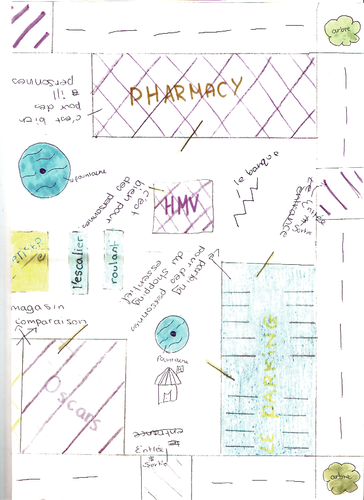 arbre
PHARMACY
c'est bien
pour des
ill
personnes
fountaine
c'est
bien pour
des personnes
HMV
le banque
entrance
Entrée
& Sortie
l'escalier
roulant
Le parking
pour des personnes
du shopping
essentiel
magasin
comparaison
fountaine
Oscars
LE PARKING
entrance
Entrée
&
Sortie
arbre